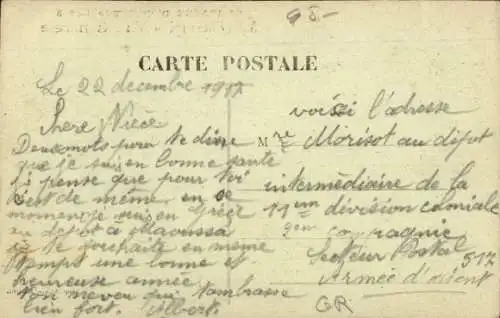 95-
CARTE POSTALE
Le 22 decembre 1917
Chere Nièce
Deux mots pour te dire
que je suis en bonne santé
je pense que pour toi
est de même. en se
moment je suis en Grèce
au depot a
je te souhaite en même
temps une bonne et
heureuse année
ton neveu qui tambrasse
bien fort. Albert
voisi l'adresse
Mr Morisot au dépot
intermédiaire de la
11em division coloniale
2em compagnie
Secteur Postal
517
Armée d'orient
GR